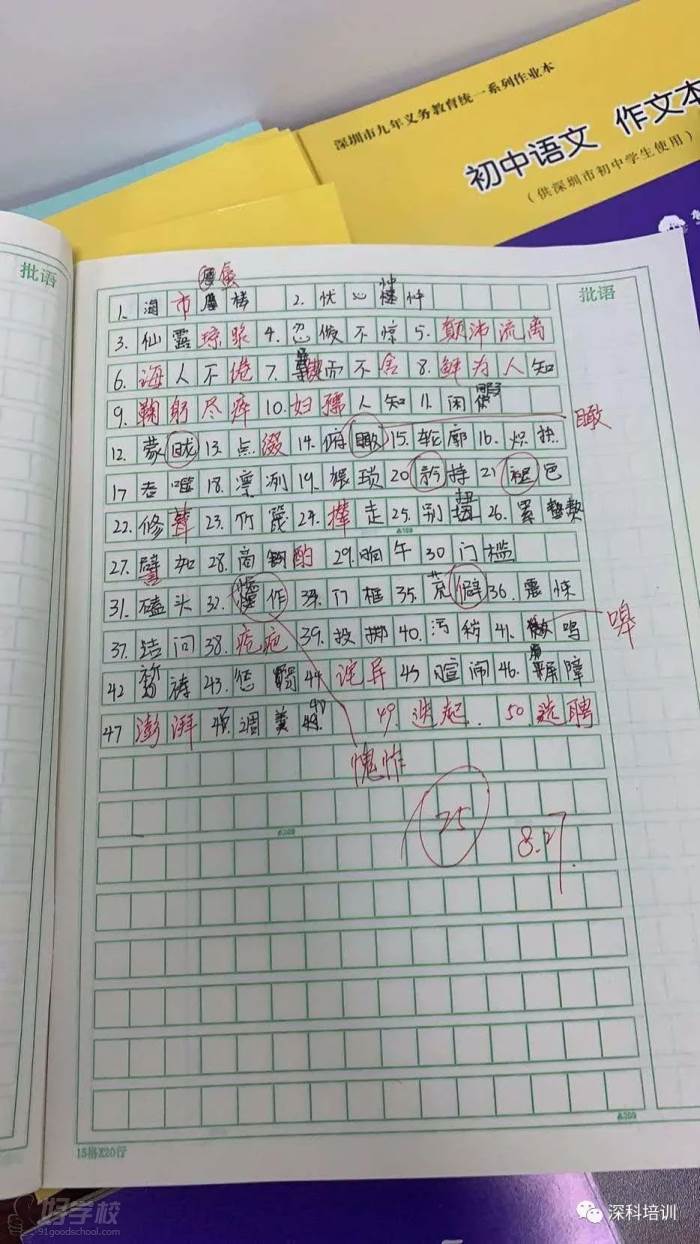 深圳市九年义务教育统一系列作业本
初中语文 作文本
(供深圳市初中学生使用)
批语
批语
蜃
1. 海市 楼 2. 忧心 忡忡
3. 仙露琼浆 4. 忍俊不 5. 颠沛流离
6. 诲人不倦 7. 而不舍 8. 鲜为人知
9. 鞠躬尽瘁 10. 妇孺人知 11. 闲暇
瞰
12. 蒙 13. 点缀 14. 俯瞰 15. 轮廓 16. 炽热
17 18. 凛冽 19. 琐 20 持 21 褪色
22. 修葺 23. 竹篾 24. 撵走 25. 别 26. 累
27. 譬如 28. 商酌 29. 晌午 30 门槛
31. 磕头 32. 作 33. 门框 35. 荒僻 36. 震悚
37. 诘问 38. 疮疤 39. 投掷 40. 污秽 41. 鸣
嗥
42 祷 43. 惩 44 诧异 45 喧闹 46. 屏障
47 澎湃 调羹 49. 迭起. 50 选聘
愧怍
75
8.27
15格X20行
好学校
91goodschool.com
深科培训